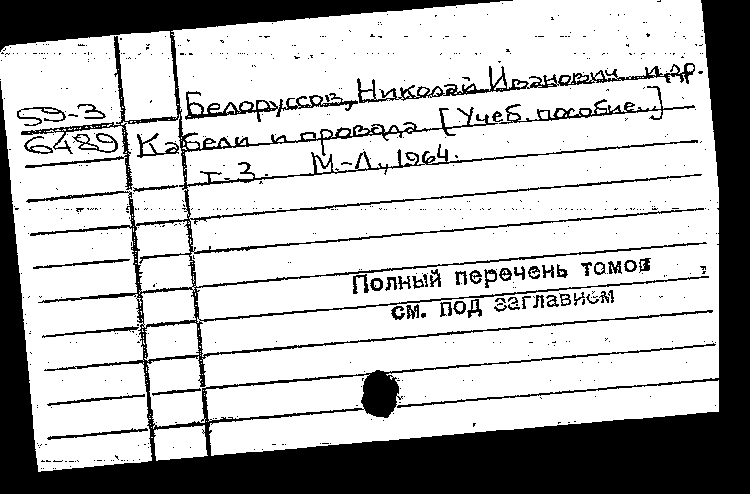 Белоруссов, Николай Иванович и др.
59-3
6489 Кабели и провода [Учеб. пособие...]
т. 3. М.-Л., 1964.
Полный перечень томов
см. под заглавием